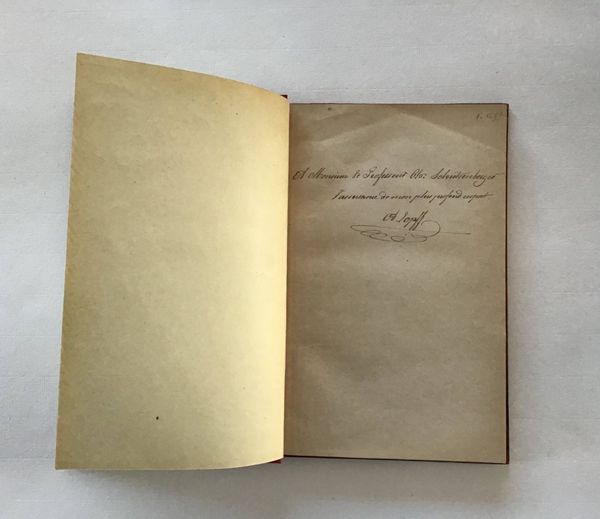 A Monsieur le Professeur Ch: Schützenberger
l'assurance de mon plus profond respect
A Zopff